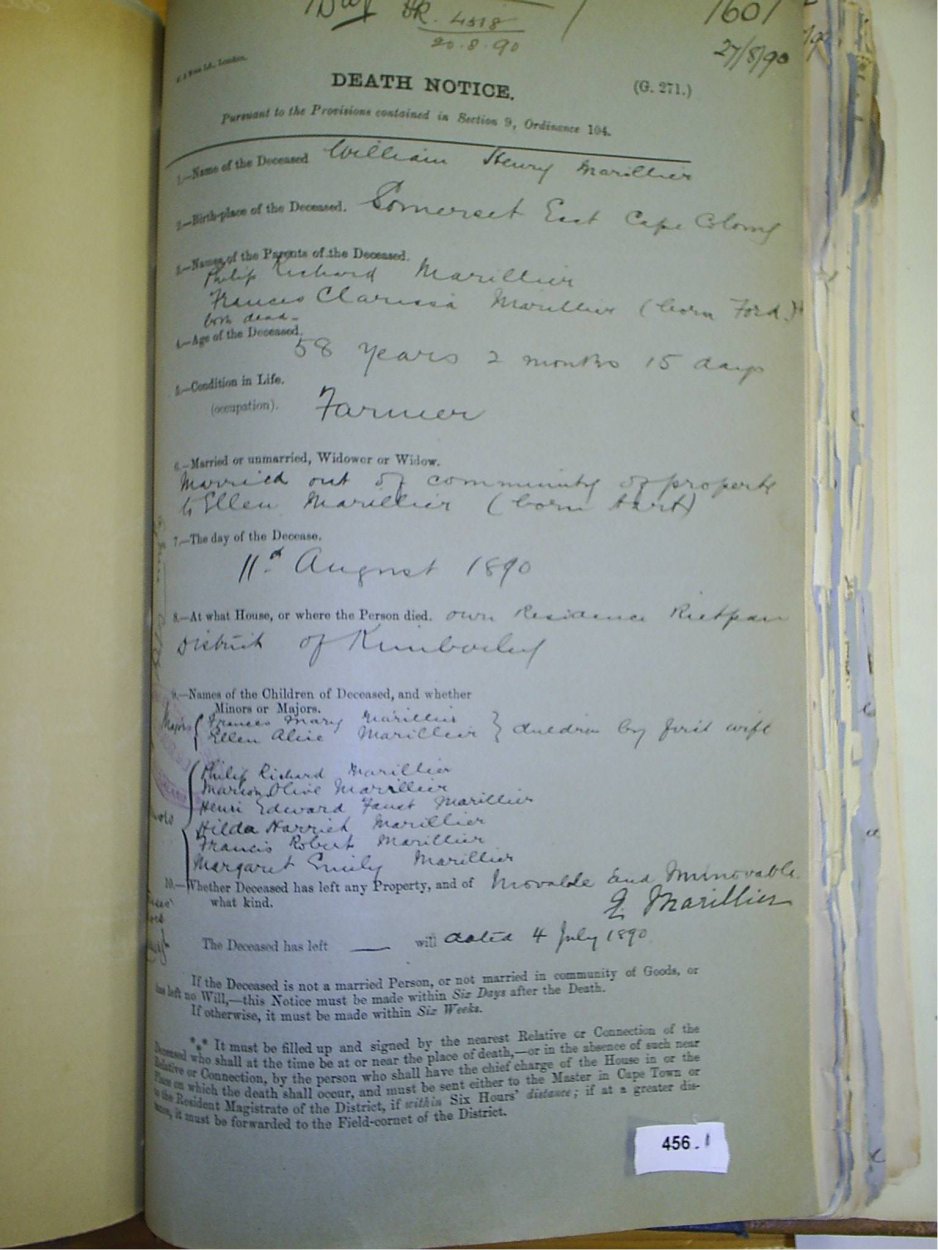 HR. 4518
1601
20.8.90
27/8/90
DEATH NOTICE.
(G. 271.)
Pursuant to the Provisions contained in Section 9, Ordinance 104.
1.—Name of the Deceased William Henry Marillier
2.—Birth-place of the Deceased. Somerset East Cape Colony
3.—Names of the Parents of the Deceased.
Philip Richard Marillier
Frances Clarissa Marillier (born Ford.)
both dead—
4.—Age of the Deceased.
58 years 2 months 15 days
5.—Condition in Life.
(occupation). Farmer
6.—Married or unmarried, Widower or Widow.
Married out of community of property
to Ellen Marillier (born Hart)
7.—The day of the Decease.
11th August 1890
8.—At what House, or where the Person died. own Residence Rietpan
District of Kimberley
9.—Names of the Children of Deceased, and whether
Minors or Majors.
Majors { Frances Mary Marillier
Ellen Alice Marillier } children by first wife
Philip Richard Marillier
Marion Olive Marillier
Henri Edward Faust Marillier
Hilda Harriet Marillier
Francis Robert Marillier
Margaret Emily Marillier
10.—Whether Deceased has left any Property, and of Movable and Immovable
what kind.
E. Marillier
The Deceased has left — will dated 4 July 1890
If the Deceased is not a married Person, or not married in community of Goods, or
has left no Will,—this Notice must be made within Six Days after the Death.
If otherwise, it must be made within Six Weeks.
*** It must be filled up and signed by the nearest Relative or Connection of the
Deceased who shall at the time be at or near the place of death,—or in the absence of such near
Relative or Connection, by the person who shall have the chief charge of the House in or the
Place on which the death shall occur, and must be sent either to the Master in Cape Town or
to the Resident Magistrate of the District, if within Six Hours' distance; if at a greater dis-
tance, it must be forwarded to the Field-cornet of the District.
456.1